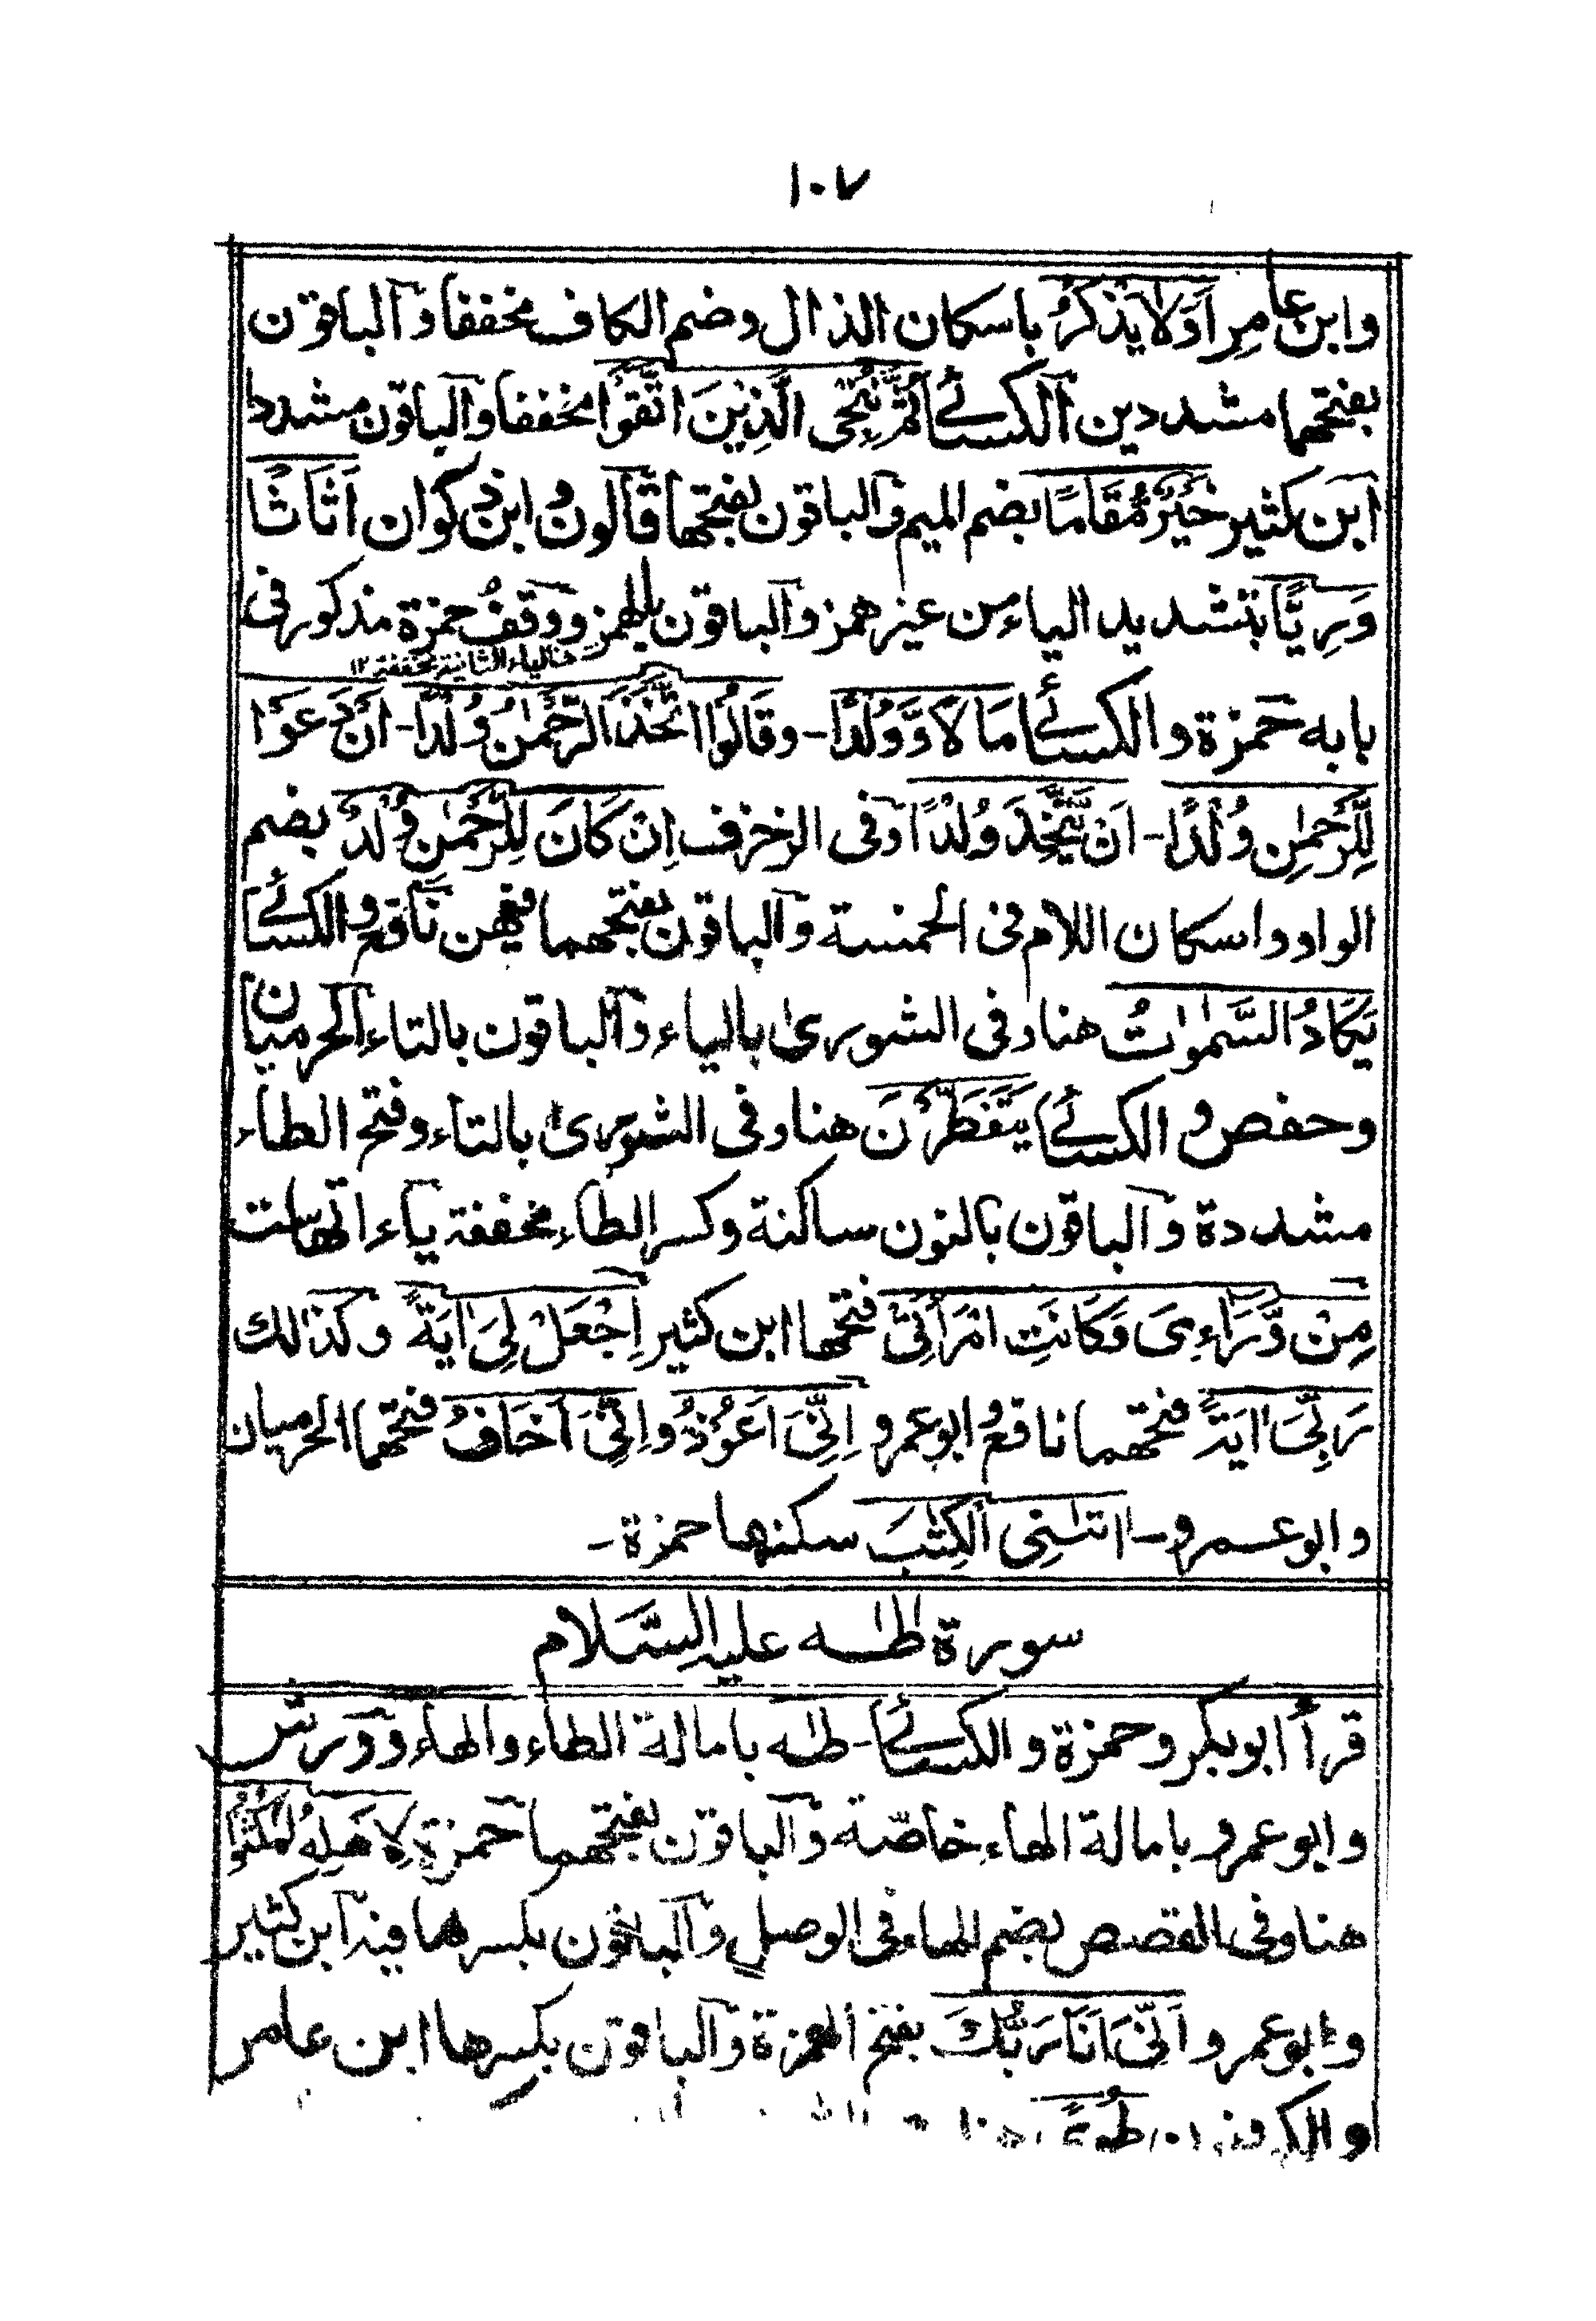 ۱۰۷
وابن عامر اَوَلَا يَذْكُرُ باسكان الذال وضم الكاف مخففا والباقون
بفتحهما مشددين الكسائے ثُمَّ نُنْجِى الَّذِيْنَ اتَّقَوْا مخففا والباقون مشددا
ابن كثير خَيْرٌ مُّقَامًا بضم الميم والباقون بفتحها قالون وابن ذكوان اَثَاثًا
وَرِيًّا بتشديد الياء من غير همز والباقون بالهمز ووقف حمزة مذكور فى
بابه حمزة والكسائے مَالًا وَّوُلْدًا - وقَالُوا اتَّخَذَ الرَّحْمٰنُ وُلْدًا - اَنْ دَعَوْا
لِلرَّحْمٰنِ وُلْدًا - اَنْ يَّتَّخِذَ وُلْدًا وفى الزخرف اِنْ كَانَ لِلرَّحْمٰنِ وُلْدٌ بضم
الواو واسكان اللام فى الخمسة والباقون بفتحهما فيهن نافع والكسائے
يَكَادُ السَّمٰوٰتُ هنا وفى الشورىٰ بالياء والباقون بالتاء الحرميان
وحفص والكسائے يَتَفَطَّرْنَ هنا وفى الشورىٰ بالتاء وفتح الطاء
مشددة والباقون بالنون ساكنة وكسر الطاء مخففة ياءاتها ست
مِنْ وَّرَاءِىَ وَكَانَتِ امْرَأَتِىْ فتحها ابن كثير اِجْعَلْ لِىَ اٰيَةً وكذالك
رَبِّىَ اِنَّهٗ فتحهما نافع وابوعمرو اِنِّىَ اَعُوْذُ واِنِّىَ اَخَافُ فتحهما الحرميان
وابوعمرو - اٰتٰنِى الْكِتٰبَ سكنها حمزة -
سورة طٰه عليه السَّلام
قرأ ابوبكر وحمزة والكسائے - طٰه بامالة الطاء والهاء وورش
وابوعمرو بامالة الهاء خاصّة والباقون بفتحهما حمزة لِاَهْلِهُ امْكُثُوْا
هنا وفى القصص بضم الهاء فى الوصل والباقون بكسرها فيه ابن كثير
وابوعمرو اَنِّىَ اَنَا رَبُّكَ بفتح الهمزة والباقون بكسرها ابن عامر